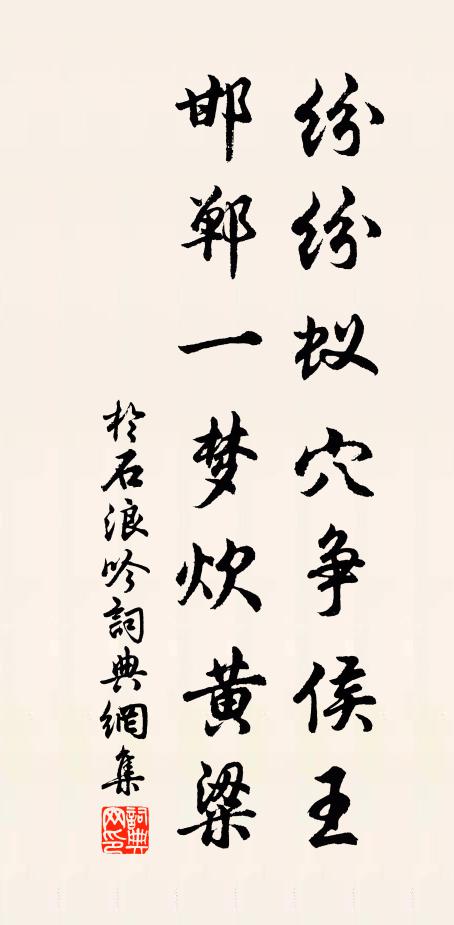 纷纷蚁穴争侯王
邯郸一梦炊黄粱
於石浪吟詞典網集
詞典網印